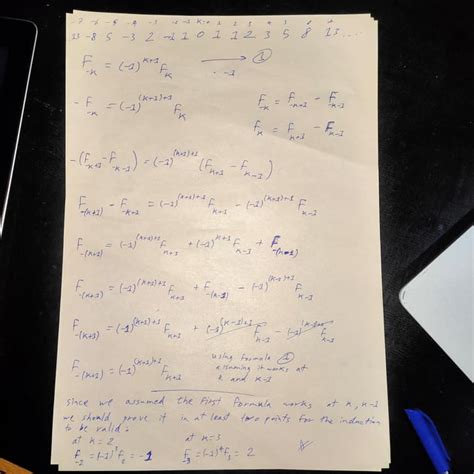 13 -8 5 -3 2 -1 1 0 1 1 2 3 5 8 13 ...
F_{-k} = (-1)^{k+1} F_k → ①
-F_{-k} = (-1)^{(k+1)+1} F_k
F_{-k} = F_{-k+1} - F_{-k-1}
F_k = F_{k+1} - F_{k-1}
-(F_{-k+1} - F_{-k-1}) = (-1)^{(k+1)+1} (F_{k+1} - F_{k-1})
F_{-(k+1)} - F_{-k+1} = (-1)^{(k+1)+1} F_{k+1} - (-1)^{(k+1)+1} F_{k-1}
F_{-(k+1)} = (-1)^{(k+1)+1} F_{k+1} + (-1)^{k+1} F_{k-1} + F_{-(k-1)}
F_{-(k+1)} = (-1)^{(k+1)+1} F_{k+1} + F_{-(k-1)} - (-1)^{(k-1)+1} F_{k-1}
F_{-(k+1)} = (-1)^{(k+1)+1} F_{k+1} + (-1)^{(k-1)+1} F_{k-1} - (-1)^{(k-1)+1} F_{k-1}
F_{-(k+1)} = (-1)^{(k+1)+1} F_{k+1}
using formula ①
assuming it works at
k and k-1
since we assumed the first formula works at k, k-1
we should prove it in at least two points for the induction
to be valid:
at k=2
F_{-2} = (-1)^3 F_2 = -1
at k=3
F_{-3} = (-1)^4 F_3 = 2